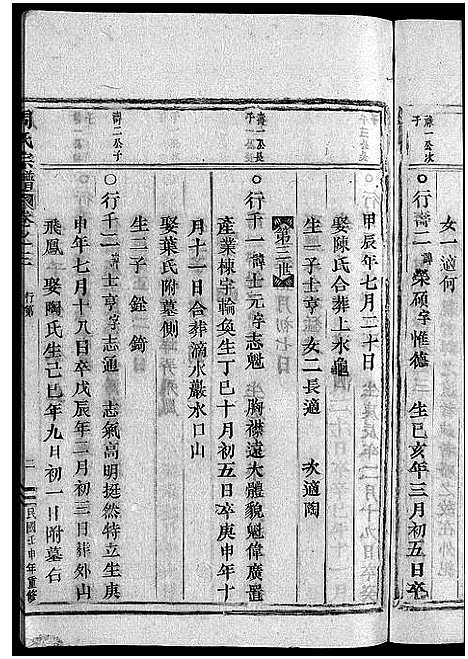 壽一公次子
○行壽二 諱榮碩字惟德 生己亥年三月初五日卒
女一適何
甲辰年七月二十日
娶陳氏合葬上水龜
生二子士亨 女二長適 次適陶
第三世
壽一公長子
○行千一 諱士元字志魁 生胸襟遠大體貌魁偉廣置
產業棟宇輪奐生丁巳十月初五日卒庚申年十
月十一日合葬滴水巖水口山
娶葉氏附墓側
生二子 銓 錡
壽二公子
○行千二 諱士亨字志通 志氣高明挺然特立生庚
申年七月十八日卒戊辰年二月初三日葬外山
飛鳳 娶陶氏生己巳年九月初一日附墓右
周氏宗譜 卷之三 行第 二 民國壬申年重修